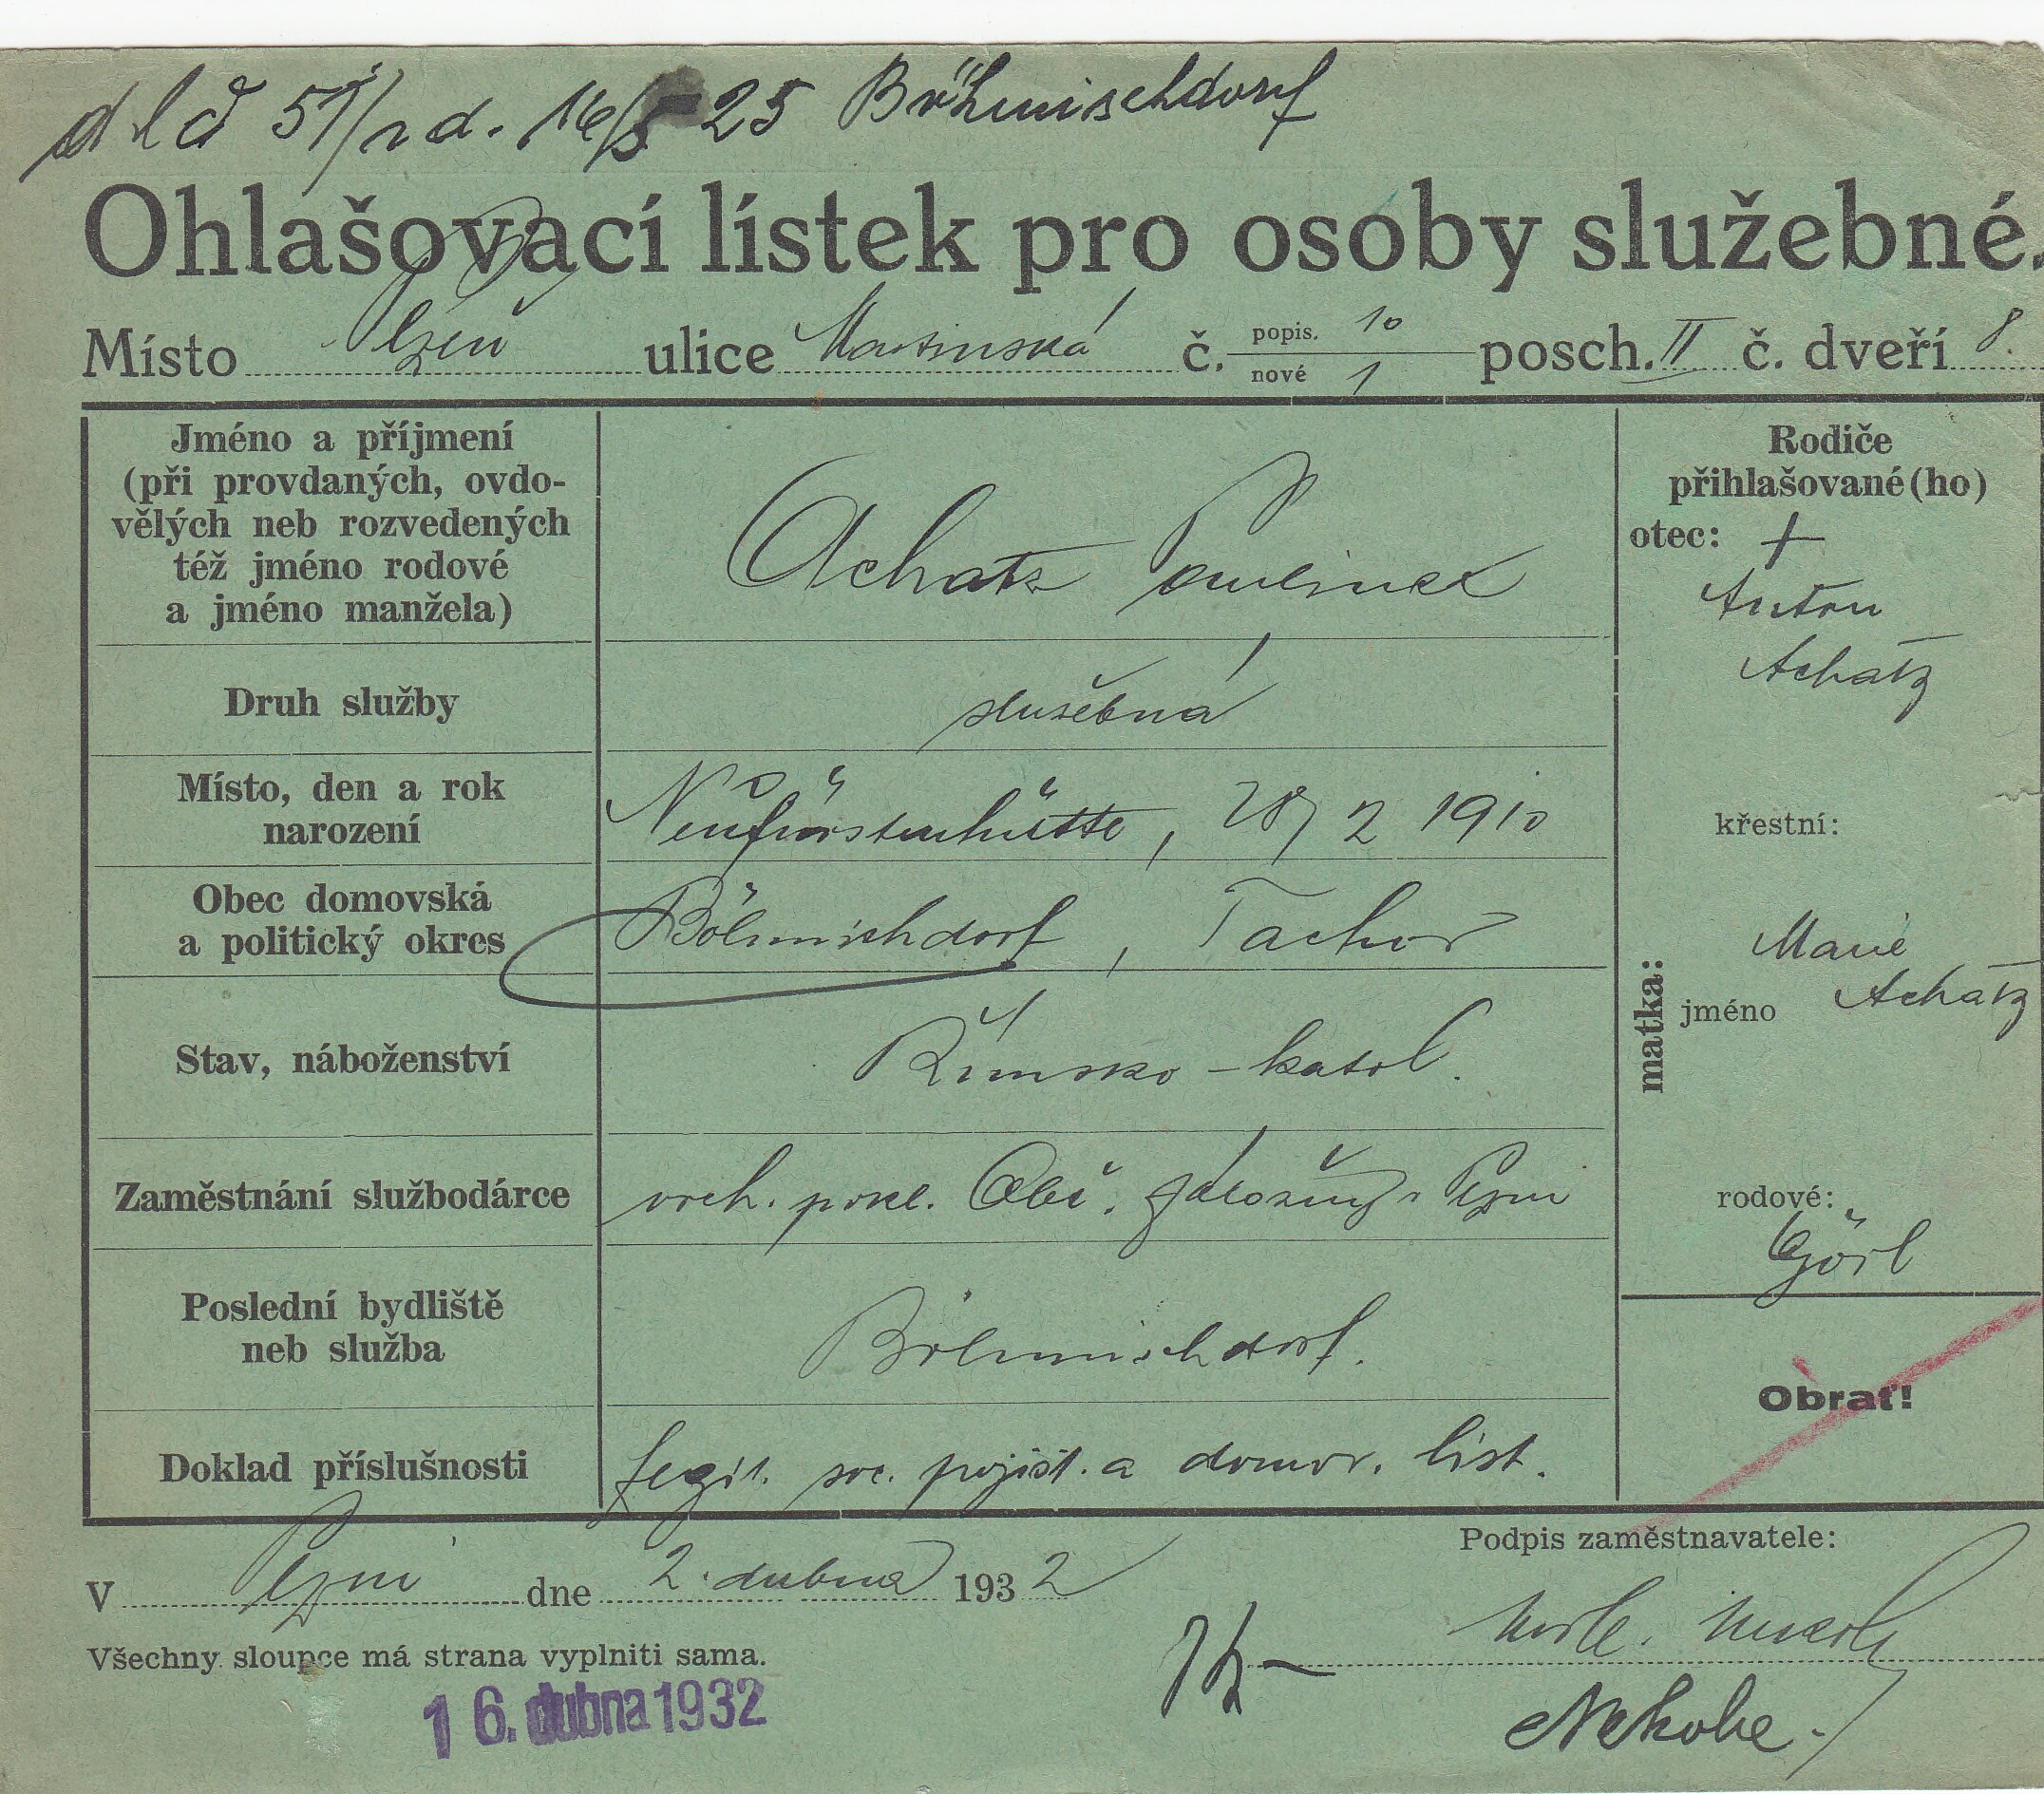 d l d 51/2 d. 16/5 25 Böhmischdorf
Ohlašovací lístek pro osoby služebné.
Místo Plzeň ulice Martinská č. popis. 10 posch. II č. dveří 8.
nové 1
Jméno a příjmení
(při provdaných, ovdo-
vělých neb rozvedených
též jméno rodové
a jméno manžela)
Achatz Paulina
Druh služby
služebná
Místo, den a rok
narození
Neufürstenhütte, 28/2 1910
Obec domovská
a politický okres
Böhmischdorf, Tachov
Stav, náboženství
Římsko-katol.
Zaměstnání službodárce
vrch. pokl. Obč. záložny v Plzni
Poslední bydliště
neb služba
Böhmischdorf.
Doklad příslušnosti
legit. soc. pojišt. a domov. list.
Rodiče
přihlašované(ho)
otec: +
Anton
Achatz
matka:
křestní:
Marie
jméno Achatz
rodové:
Görl
Obrať!
V Plzni dne 2. dubna 1932
Podpis zaměstnavatele:
Všechny sloupce má strana vyplniti sama.
16. dubna 1932
Nekola